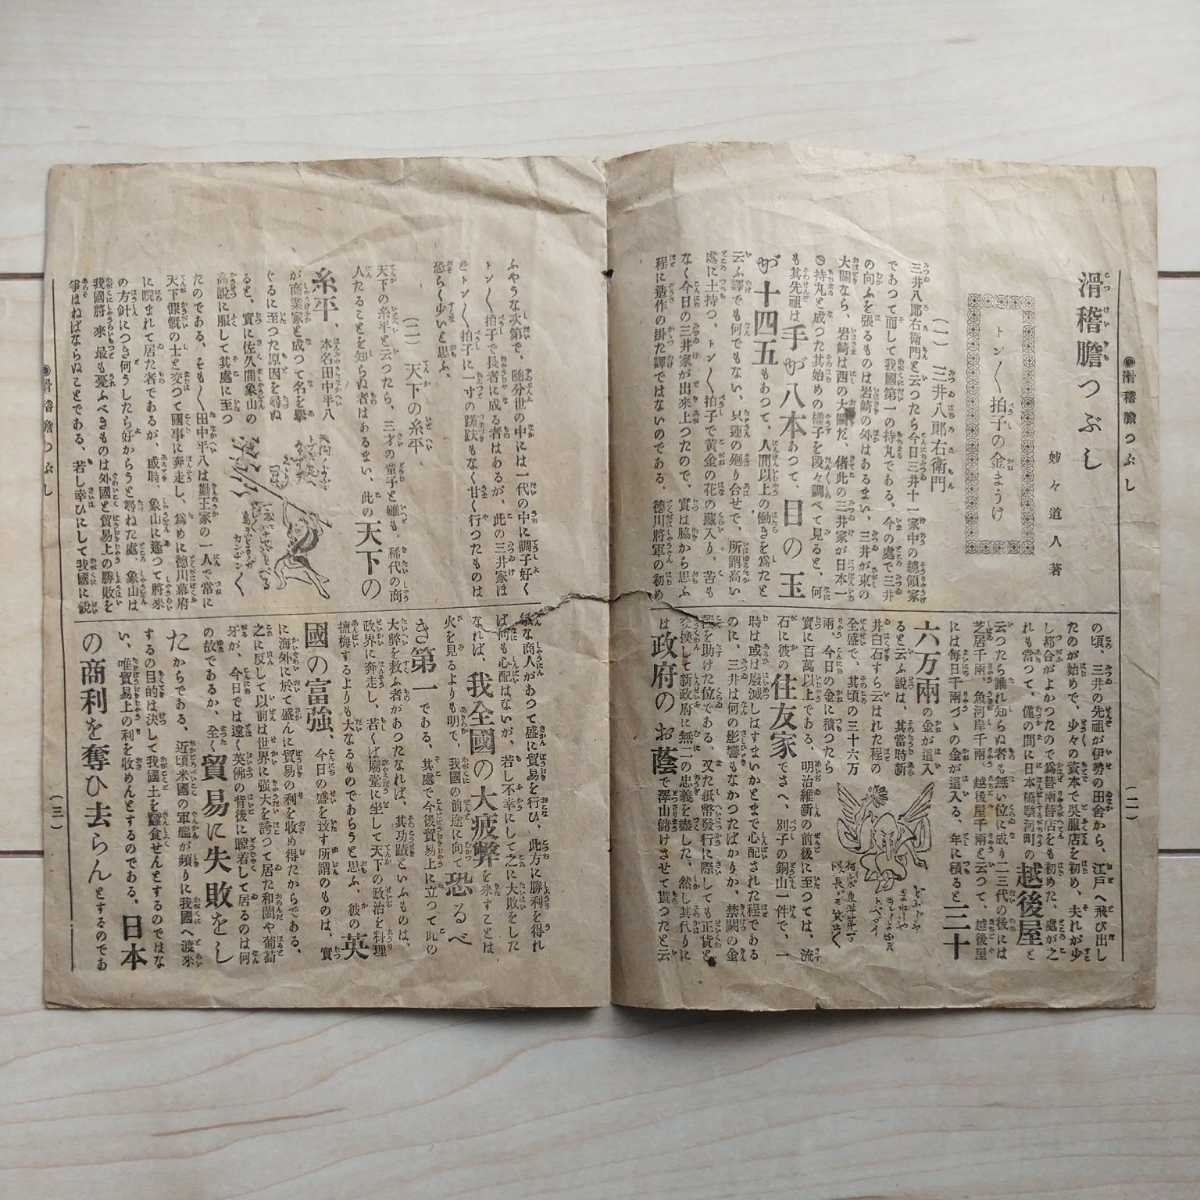 ◉滑稽膽つぶし
(二)
滑稽膽つぶし
妙々道人著
トン〳〵拍子の金まうけ
(一) 三井八郎右衛門
三井八郎右衛門と云つたら今日三井十一家中の總領家
であつて而して我國第一の持丸である、今の處で三井
の向ふを張るものは岩崎の外はあるまい、三井が東の
大關なら、岩崎は西の大關だ、偖此の三井家が日本一
の持丸と成つた其始めの樣子を段々調べて見ると、何
も其先祖は手が八本あつて、目の玉
が十四五もあつて、人間以上の働きを爲たと
云ふ譯でも何でもない、只運の廻り合せで、所謂高い
處に土持つ、トン〳〵拍子で黄金の花の藏入り、苦も
なく今日の三井家が出來上つたので、實は脇から思ふ
程に造作の掛た譯ではないのである、德川將軍の初め
の頃、三井の先祖が伊勢の田舎から、江戸へ飛び出し
たのが始めで、少々の資本で呉服店を初め、夫れが少
し都合がよかつたので爲替兩替店をも初めた、處が之
れも當つて、僅の間に日本橋駿河町の越後屋と
云つたら誰れ知らぬ者も無い位に成り二三代の後には
芝居千兩、魚河岸千兩、越後屋千兩と云つて、越後屋
には毎日千兩づゝの金が這入る、年に積ると三十
六万兩の金が這入
ると云ふ説は、其當時新
井白石すら云はれた程の
全盛で、其頃の三十六万
兩、今日の金に積つたら
實に百萬以上である、明治維新の前後に至つては、流
石に彼の住友家でさへ、別子の銅山一件で、一
時は或は廢滅しはすまいかとまで心配された程である
のに、三井は何の影響もなかつたばかりか、禁闕の金
程を助けた位である、又た紙幣發行に際しても正貨と
交換して新政府に無二の忠義を盡した、然し其代りに
は政府のお蔭で澤山儲けさせて貰つたと云
ふやうな次第で、隨分世の中には一代の中に調子好く
トン〳〵拍子で長者に成る者はあるが、此の三井家は
どトン〳〵拍子に一寸の蹉跌もなく甘く行つたものは
恐らく少いと思ふ、
(二) 天下の糸平
天下の糸平と云つたら、三才の童子と雖も、稀代の商
人たることを知らぬ者はあるまい、此の天下の
糸平、本名田中平八
が商業家と成つて名を擧
ぐるに至つた原因を尋ぬ
ると、實に佐久間象山の
高説に服して其處に至つ
たのである、そも〳〵田中平八は勤王家の一人で常に
天下慷慨の士と交つて國事に奔走し、爲めに德川幕府
に睨まれて居た者であるが、或時、象山に逢つて將來
の方針につき何うしたら好からうと尋ねた處、象山は
我國將來最も憂ふべきものは外國と貿易上の勝敗を
爭はねばならぬことである、若し幸ひにして我國に鋭
敏な商人があつて盛に貿易を行ひ、此方に勝利を得れ
ば何も心配はないが、若し不幸にして之に大敗をした
なれば、我全國の大疲弊を來すことは
火を見るよりも明で、我國の前途に向て恐るべ
き第一である、其處で今後貿易上に立つて此の
大弊を救ふ者があつたなれば、其功蹟といふものは、
政界に奔走し、若くば廟堂に坐して天下の政治を料理
鹽梅するよりも大なるものであらうと思ふ、彼の英
國の富強、今日の盛を致す所謂のものは、實
に海外に於て盛んに貿易の利を收め得たからである、
之に反して以前は世界に強大を誇つて居た和蘭や葡萄
牙が、今日では遠く英佛の背後に瞠着して居るのは何
の故であるか、全く貿易に失敗をし
たからである、近頃米國の軍艦が頻りに我國へ渡來
するの目的は決して我國土を蠶食せんとするのではな
い、唯貿易上の利を收めんとするのである、日本
の商利を奪ひ去らんとするのであ
◉滑稽膽つぶし
(三)